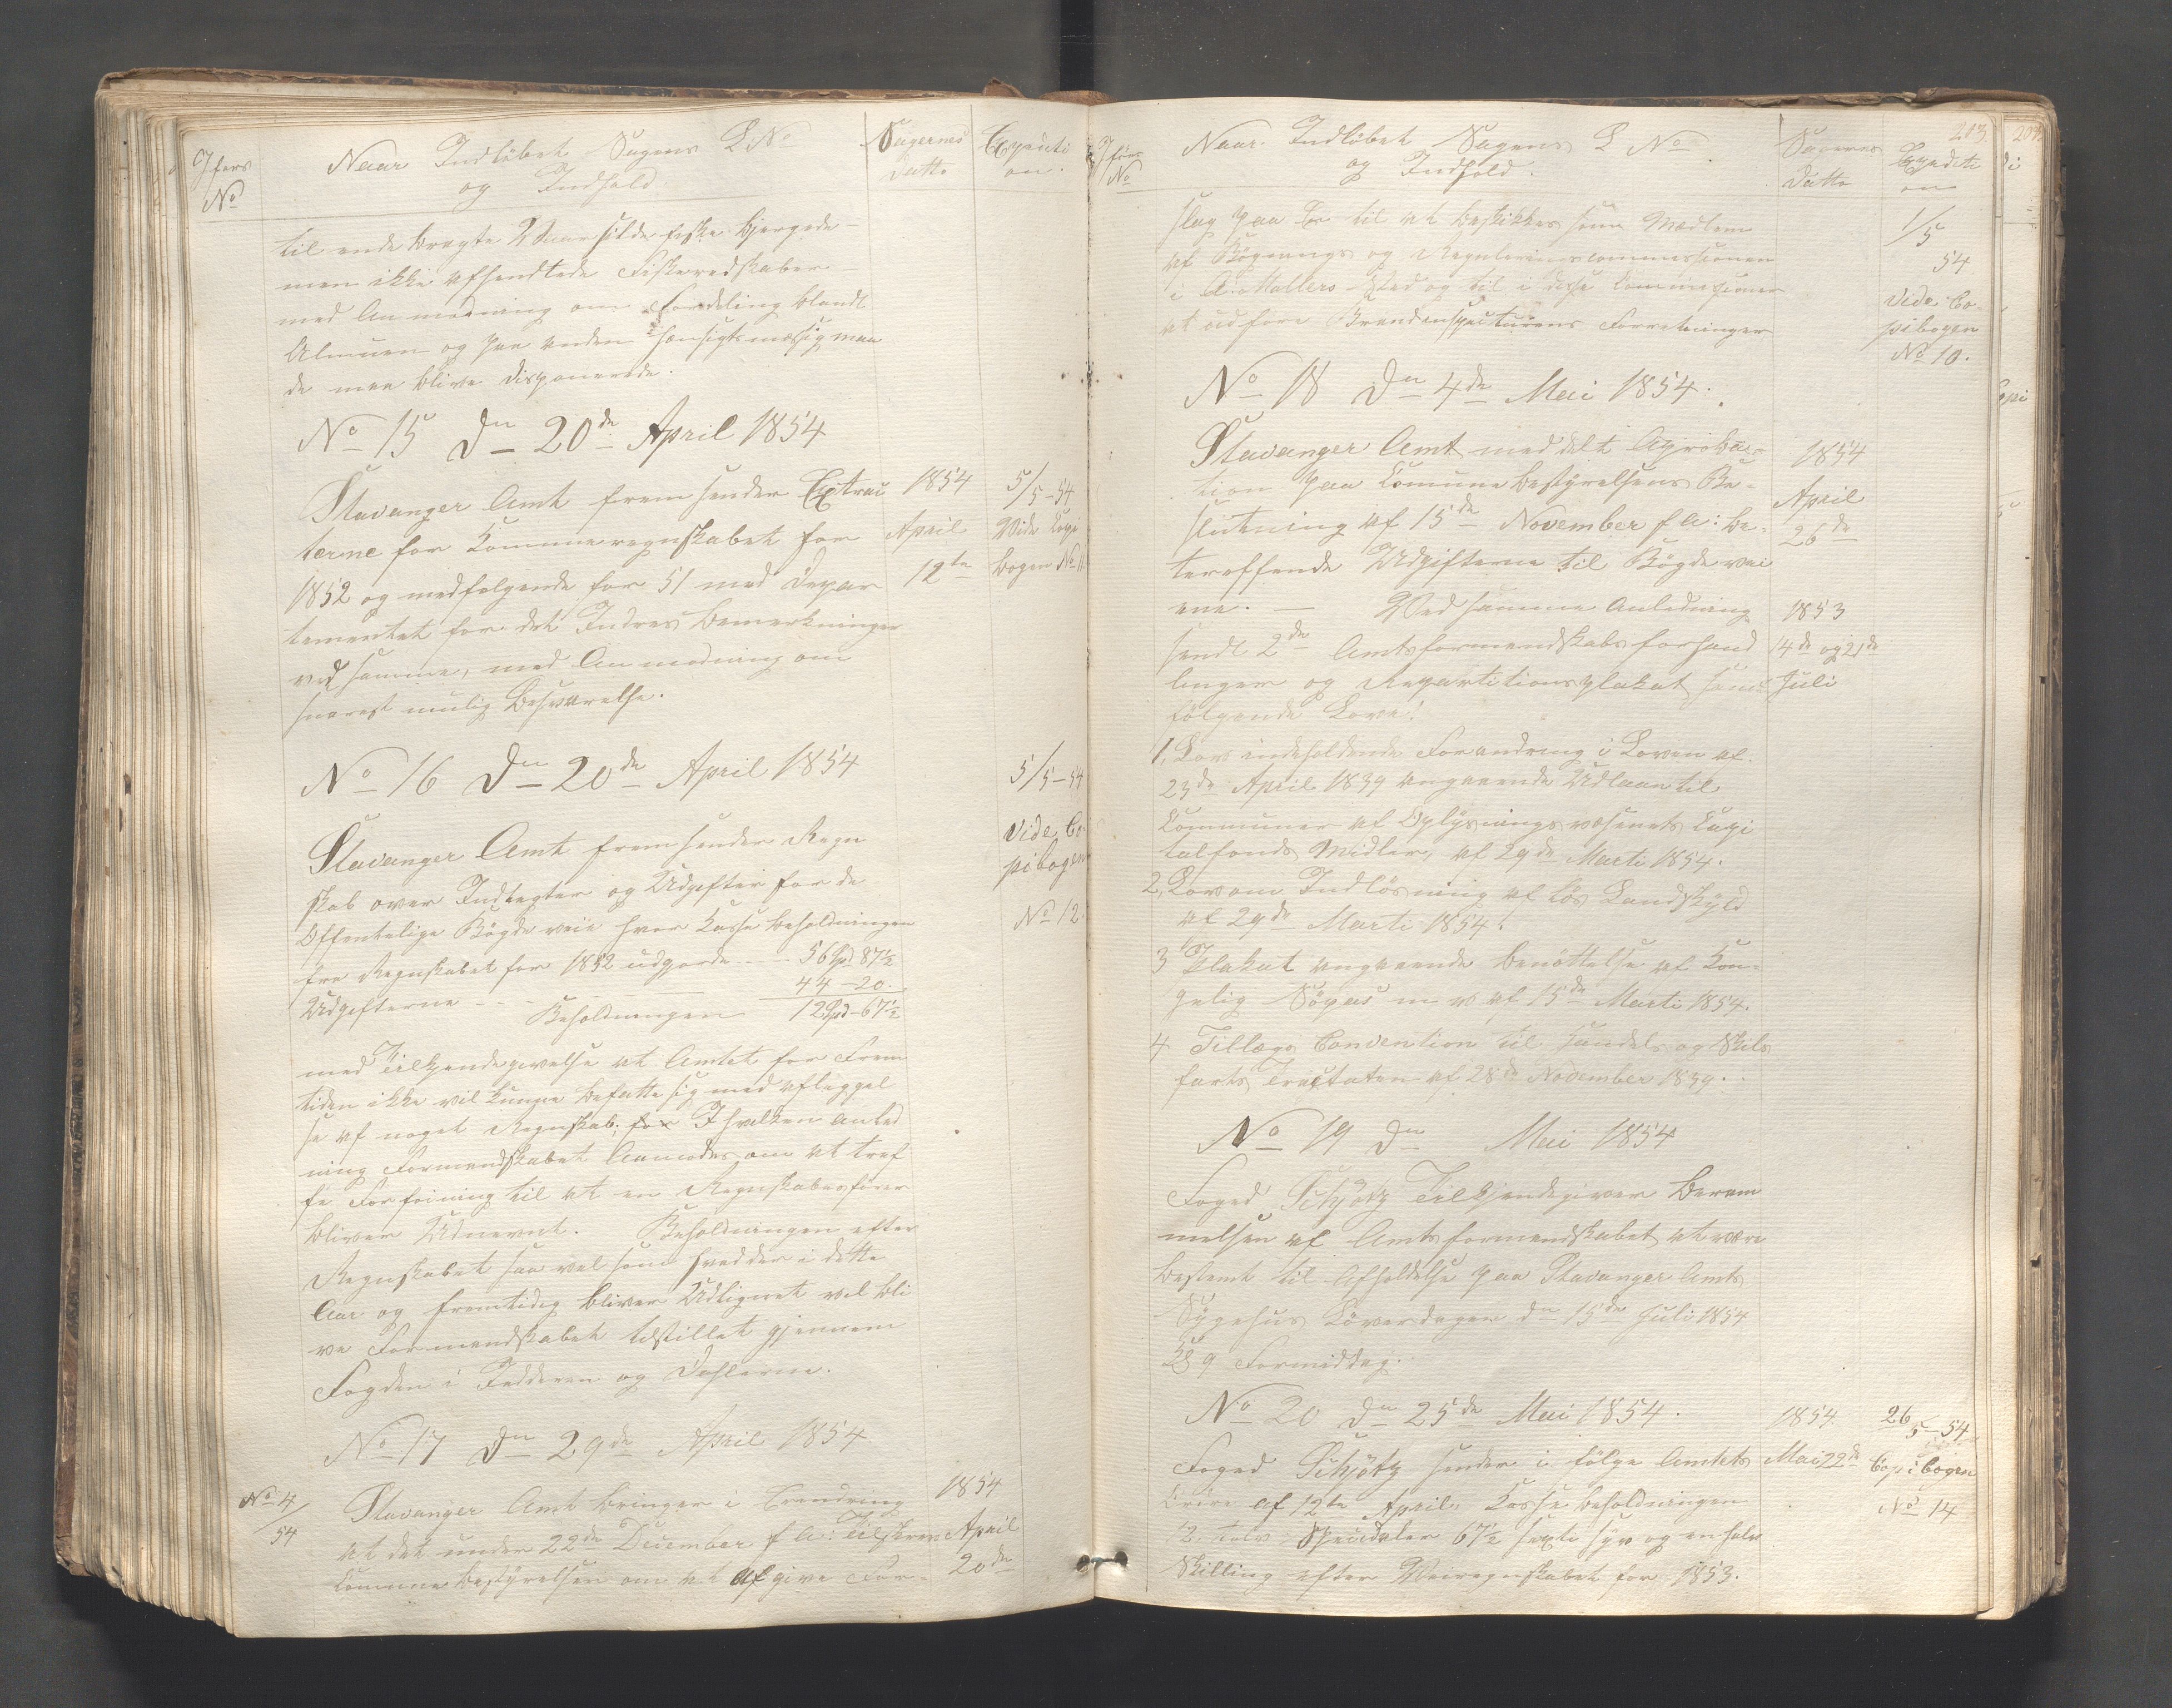 Jfers
No
Naar Indløbet Sagens L. No
og Indhold.
Sagernes
Datto
Expediti
on.
til ende bragte Vaarsildefiske bjergede
men ikke afhendtede Fiskeredskaber
med Anmodning om Fordeling blandt
Almuen og paa anden hensigtsmæssig maa
de maa blive disponerede.
No 15 Dn 20de April 1854
Stavanger Amt fremsender Extrac
terne for Kommuneregnskabet for
1852 og medfølgende for 51 med Depar
tementet for det Indres Bemærkninger
ved samme, med Anmodning om
snarest mulig Besvarelse.
1854
April
12te
5/5-54
Vide Copi
bogen No 11
No 16 Dn 20de April 1854
Stavanger Amt fremsender Regn
skab over Indtegter og Udgifter for de
Offentelige Bögdeveie hvor Kasse Beholdningen
fra Regnskabet for 1852 udgjorde - - - 56 Spd 87½
Udgifterne - - - 44 - 20.
Beholdningen 12 Spd - 67½
5/5-54
Vide Co
pibogen
No 12.
med Tilkjendegivelse at Amtet for Frem
tiden ikke vil kunne befatte sig med aflæggel
se af noget Regnskab; for I hvilken Anled
ning Formandskabet Anmodes om at tref
fe Forføining til at en Regnskabesfører
bliver Udnevnt. Beholdningen efter
Regnskabet saavel som hvad der i dette
Aar og fremtidig bliver Udlignet vil bli
ve Formandskabet tilstillet gjennem
Fogden i Jedderen og Dahlerne.
No 17 Dn 29de April 1854
No 4/54
Stavanger Amt bringer i Erindring
at det under 22de December f. A: Tilskrev
Kommunebestyrelsen om at afgive For-
1854
April
20de
Jførs
No
Naar Indløbet Sagens L No
og Indhold.
Sagernes
Datto
Expediti
on
213
slag paa En til at beskikkes som Medlem
af Bögnings og Reguleringscommissionen
i A. Mallers Sted og til i disse Commissioner
at udføre Brandinspecteurens Forretninger
1/5
54
Vide Co
pibogen
No 10.
No 18 Dn 4de Mai 1854.
Stavanger Amt meddelt Aproba-
tion paa Komunebestyrelsens Be-
slutning af 15de November f. A: be-
træffende Udgifterne til Bögdevei
ene. — Ved samme Anledning
sendt 2de Amtsformandskabsforhand
linger og Repartitionsplakat samt
følgende Love:
1854
April
26de
1853
14de og 21de
Juli
1, Lov indeholdende Forandring i Loven af
23de April 1839 angaaende Udlaan til
Kommuner af Oplysningsvæsenets Capi
talfonds Midler, af 29de Marti 1854.
2, Lov om Indløsning af løs Landskyld
af 29de Marti 1854.
3 Plakat angaaende Benöttelse af Kon-
gelig Søpas m v af 15de Marti 1854.
4 Tillægs Convention til Handels og Skibs
farts Tractaten af 28de November 1839.
No 19 Dn Mai 1854
Foged Schjötz Tilkjendegiver Beram
melsen af Amtsformandskabet at være
bestemt til Afholdelse paa Stavanger Amts
Sygehus Löverdagen dn 15de Juli 1854
Kl 9 Formiddag.
No 20 dn 25de Mai 1854.
Foged Schjötz sender i følge Amtets
Ordre af 12te April Kasse beholdningen
12 tolv Speciedaler 67½ sexti syv og en halv
Skilling efter Veiregnskabet for 1853.
1854
Mai 22de
26/5-54
Copibogen
No 14